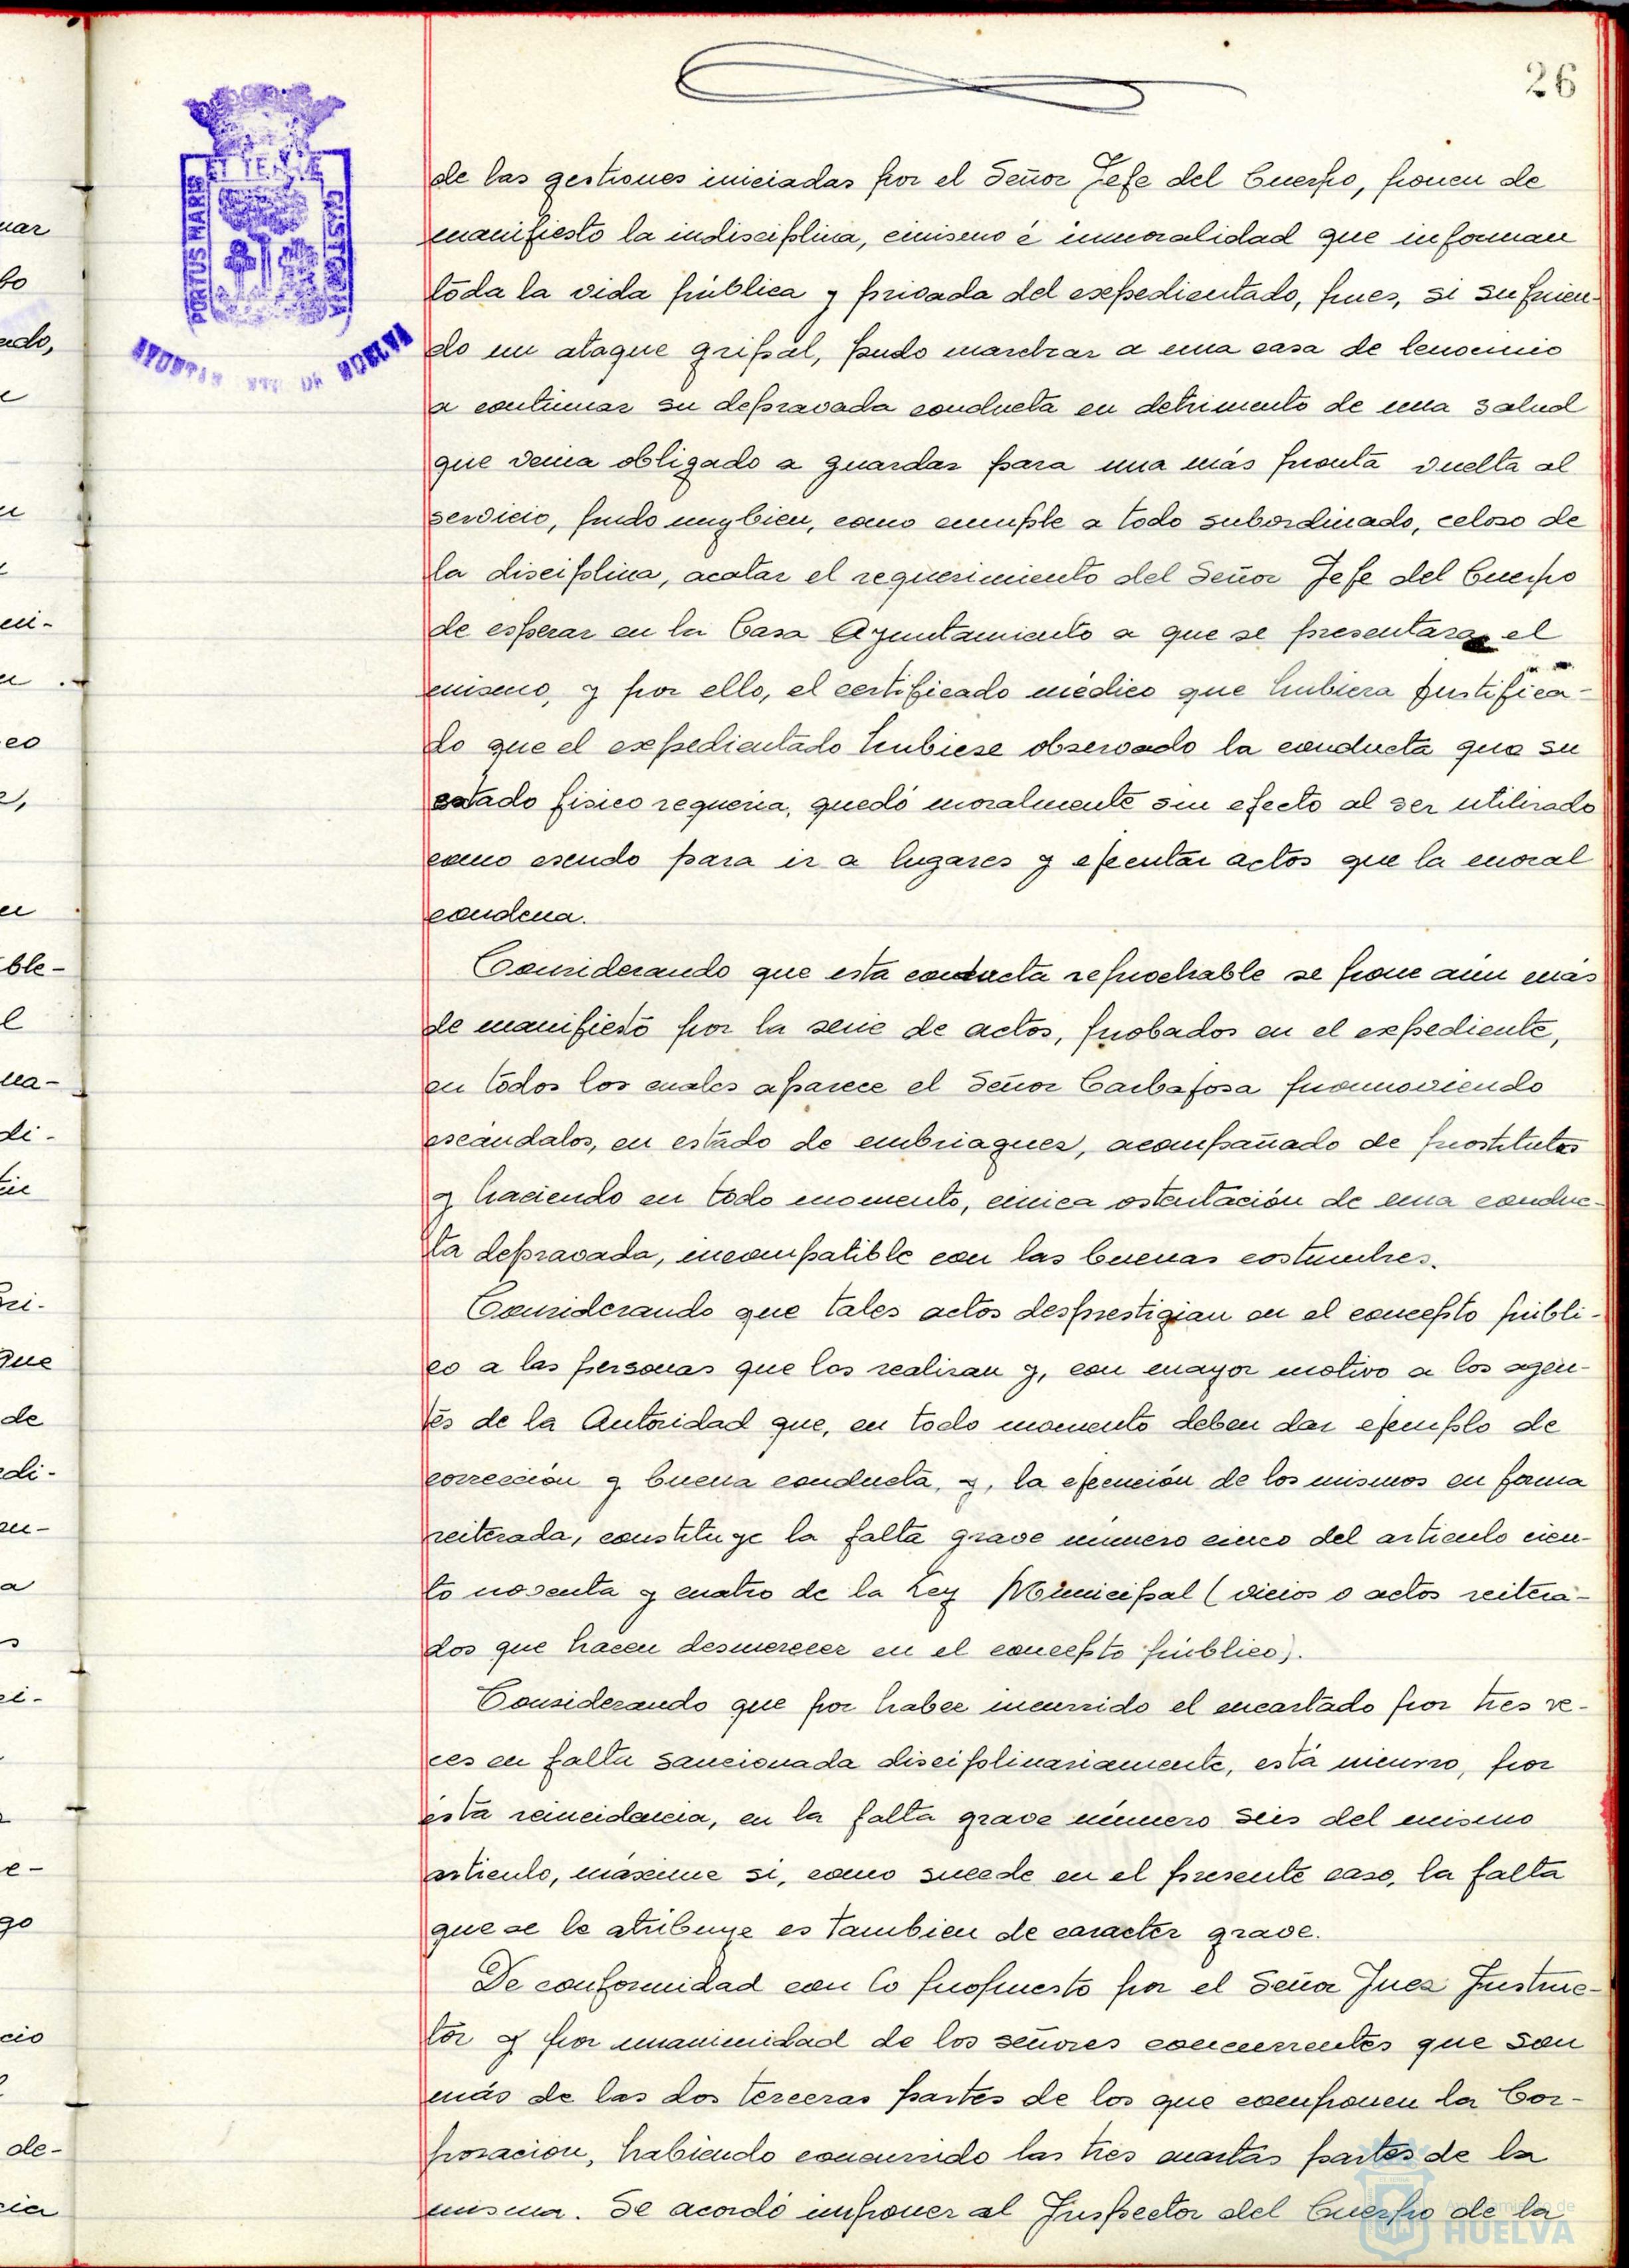 26
ET TERRE
PORTUS MARIS
CUSTODIA
AYUNTAMIENTO DE HUELVA
de las gestiones iniciadas por el Señor Jefe del Cuerpo, ponen de
manifiesto la indisciplina, cinismo é inmoralidad que informan
toda la vida pública y privada del expedientado, pues, si sufrien-
do un ataque gripal, pudo marchar a una casa de lenocinio
a continuar su depravada conducta en detrimento de una salud
que venia obligado a guardar para una más pronta vuelta al
servicio, pudo muy bien, como cumple a todo subordinado, celoso de
la disciplina, acatar el requerimiento del Señor Jefe del Cuerpo
de esperar en la Casa Ayuntamiento a que se presentara el
mismo, y por ello, el certificado médico que hubiera justifica-
do que el expedientado hubiese observado la conducta que su
estado fisico requeria, quedó moralmente sin efecto al ser utilizado
como escudo para ir a lugares y ejecutar actos que la moral
condena.
Considerando que esta conducta reprochable se pone aún más
de manifiesto por la serie de actos, probados en el expediente,
en todos los cuales aparece el Señor Carbajosa promoviendo
escándalos, en estado de embriaguez, acompañado de prostitutas
y haciendo en todo momento, cinica ostentación de una conduc-
ta depravada, incompatible con las buenas costumbres.
Considerando que tales actos desprestigian en el concepto públi-
co a las personas que los realizan y, con mayor motivo a los agen-
tes de la Autoridad que, en todo momento deben dar ejemplo de
corrección y buena conducta, y, la ejecución de los mismos en forma
reiterada, constituye la falta grave número cinco del articulo cien-
to noventa y cuatro de la Ley Municipal (vicios o actos reitera-
dos que hacen desmerecer en el concepto público).
Considerando que por haber incurrido el encartado por tres ve-
ces en falta sancionada disciplinariamente, está incurso, por
ésta reincidencia, en la falta grave número seis del mismo
articulo, máxime si, como sucede en el presente caso, la falta
que se le atribuye es tambien de caracter grave.
De conformidad con lo propuesto por el Señor Juez Instruc-
tor y por unanimidad de los señores concurrentes que son
más de las dos terceras partes de los que componen la Cor-
poracion, habiendo concurrido las tres cuartas partes de la
misma. Se acordó imponer al Inspector del Cuerpo de la
Ayuntamiento de
HUELVA